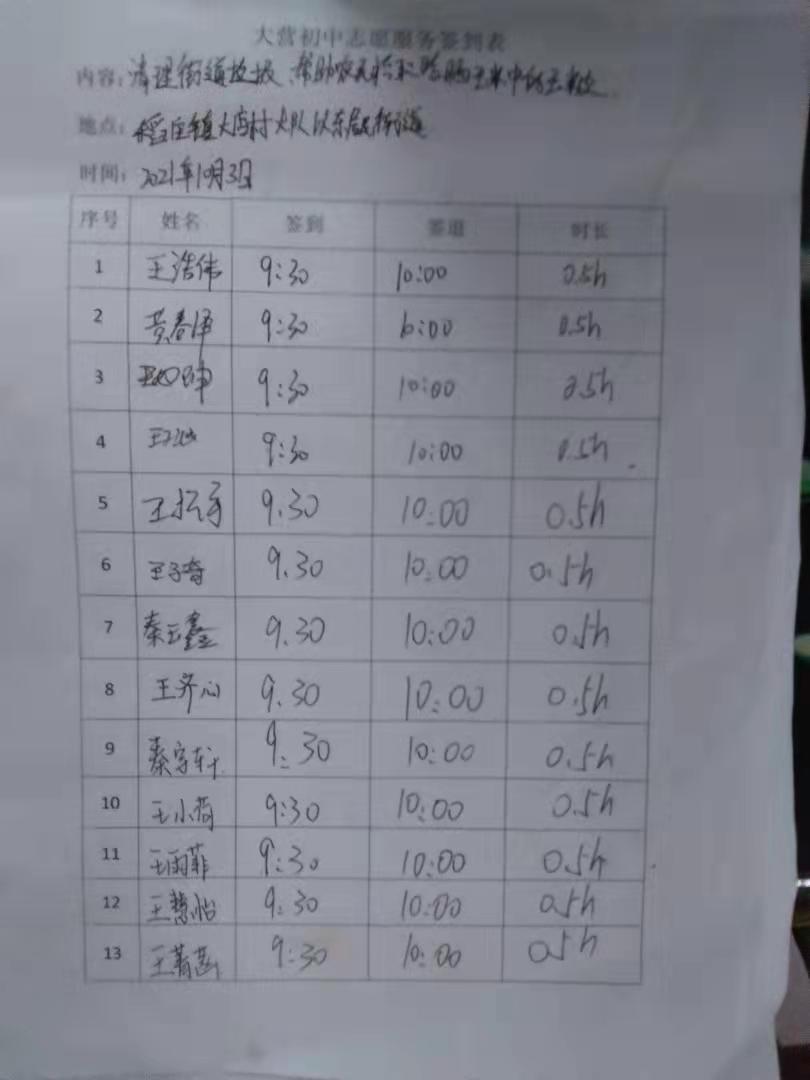 大营初中志愿服务签到表
内容：清理街道垃圾、帮助农民
地点：稻庄镇大店村大队以东居民街道
时间：2021年10月3日
序号 姓名 签到 签退 时长
1 王浩伟 9:30 10:00 0.5h
2 黄春泽 9:30 10:00 0.5h
3 9:30 10:00 0.5h
4 9:30 10:00 0.5h
5 9.30 10:00 0.5h
6 王子奇 9.30 10:00 0.5h
7 秦玉鑫 9.30 10:00 0.5h
8 王齐心 9.30 10:00 0.5h
9 秦宇轩 9:30 10:00 0.5h
10 王小荷 9:30 10:00 0.5h
11 王雨菲 9:30 10:00 0.5h
12 王慧怡 9:30 10:00 0.5h
13 王菁菡 9:30 10:00 0.5h